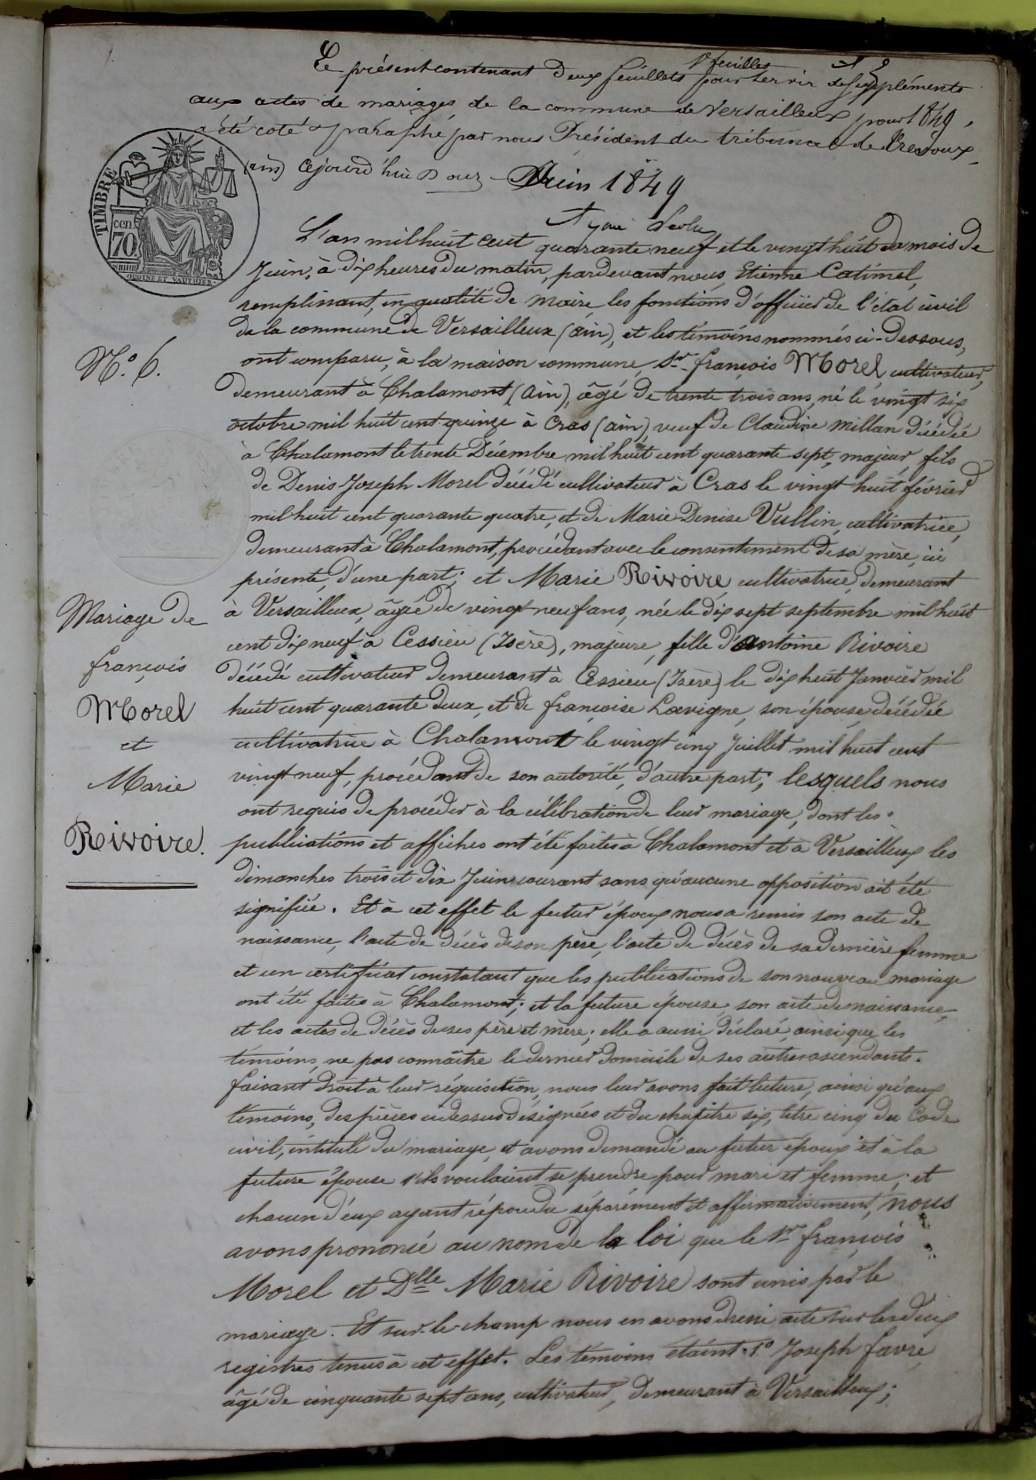 Le présent contenant Deux feuillets pour servir de suppléments
1er feuillet
aux actes de mariages de la commune de Versailleux pour 1849,
a été coté & paraphé par nous Président du tribunal de Trévoux,
(ain) cejourd'hui Douze Juin 1849
TIMBRE
cen.
70
L'an mil huit cent quarante neuf et le vingt huit du mois de
Juin, à dix heures du matin, pardevant nous, Etienne Catimel,
remplissant, en qualité de maire, les fonctions d'officier de l'état civil
de la commune de Versailleux (ain), et les témoins nommés ci-dessous,
N.o 6.
ont comparu, à la maison commune, Sr. françois Morel cultivateur,
demeurant à Chalamont (Ain), âgé de trente trois ans, né le vingt six
octobre mil huit cent quinze à Cras (ain), veuf de Claudine Millan décédée
à Chalamont le trente Décembre mil huit cent quarante sept, majeur, fils
de Denis Joseph Morel décédé cultivateur à Cras le vingt huit février
mil huit cent quarante quatre, et de Marie Denise Vullin cultivatrice,
demeurant à Chalamont, procédant avec le consentement de sa mère, ici
présente, d'une part; et Marie Rivoire, cultivatrice, demeurant
Mariage de
françois
Morel
et
Marie
Rivoire.
à Versailleux, âgée de vingt neuf ans, née le dix sept septembre mil huit
cent dix neuf à Cessieu (Isère), majeure, fille d'antoine Rivoire
décédé cultivateur demeurant à Cessieu (Isère) le dix huit Janvier mil
huit cent quarante deux, et de françoise Lavigne, son épouse décédée
cultivatrice à Chalamont le vingt cinq Juillet mil huit cent
vingt neuf, procédant de son autorité, d'autre part; lesquels nous
ont requis de procéder à la célébration de leur mariage, dont les
publications et affiches ont été faites à Chalamont et à Versailleux les
dimanches trois et dix Juin courant sans qu'aucune opposition ait été
signifiée. Et à cet effet le futur époux nous a remis son acte de
naissance, l'acte de décès de son père, l'acte de décès de sa dernière femme
et un certificat constatant que les publications de son nouveau mariage
ont été faites à Chalamont; et la future épouse, son acte de naissance,
et les actes de décès de ses père et mère; elle a aussi déclaré, ainsi que les
témoins, ne pas connaître le dernier domicile de ses autres ascendants.
faisant droit à leur réquisition, nous leur avons fait lecture, ainsi qu'aux
témoins, des pièces ci dessus désignées et du chapitre six, titre cinq du Code
civil, intitulé du mariage, et avons demandé au futur époux et à la
future épouse s'ils voulaient se prendre pour mari et femme; et
chacun d'eux ayant répondu séparément et affirmativement, nous
avons prononcé au nom de la loi que le Sr. françois
Morel et Dlle Marie Rivoire sont unis par le
mariage. Et sur le champ nous en avons dressé acte sur les deux
registres tenus à cet effet. Les témoins étaient 1o Joseph favre
âgé de cinquante sept ans, cultivateur, demeurant à Versailleux;